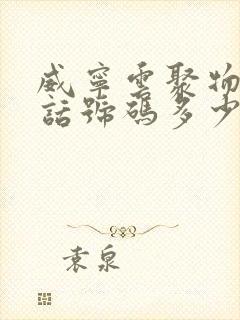 威寧雲聚物
話號碼多少
袁泉